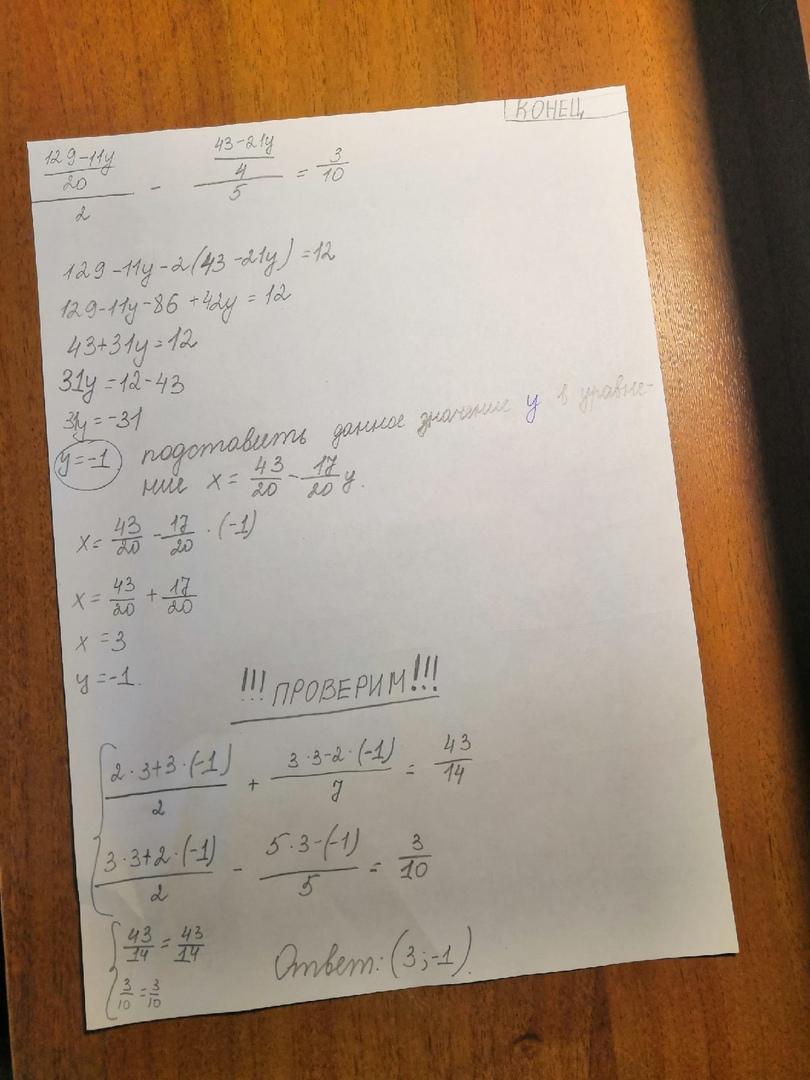 КОНЕЦ
\frac{\frac{129-11y}{20}}{2} - \frac{\frac{43-21y}{4}}{5} = \frac{3}{10}
129-11y-2(43-21y)=12
129-11y-86+42y=12
43+31y=12
31y=12-43
31y=-31
y=-1 подставить данное значение y в уравне-
ние x=\frac{43}{20}-\frac{17}{20}y.
x=\frac{43}{20}-\frac{17}{20}·(-1)
x=\frac{43}{20}+\frac{17}{20}
x=3
y=-1.
!!!ПРОВЕРИМ!!!
\frac{2·3+3·(-1)}{2} + \frac{3·3-2·(-1)}{7} = \frac{43}{14}
\frac{3·3+2·(-1)}{2} - \frac{5·3-(-1)}{5} = \frac{3}{10}
\frac{43}{14}=\frac{43}{14}
\frac{3}{10}=\frac{3}{10}
Ответ: (3;-1).